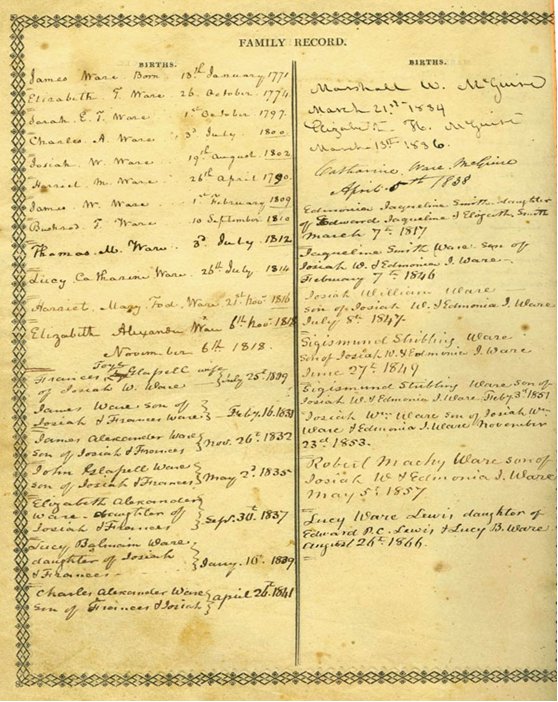 FAMILY RECORD.
BIRTHS.
James Ware Born 13th January 1771
Elizabeth T. Ware 26 October 1774
Sarah E. T. Ware 1st October 1797
Charles A. Ware 3d July 1800
Josiah W. Ware 19th August 1802
Harriet M. Ware 26th April
James W. Ware 1st February 1809
Bushrod T Ware 10 September 1810
Thomas M. Ware 3d July 1812
Lucy Catharine Ware 26th July 1814
Harriet Mary Tod Ware 21st Novr 1816
Elizabeth Alexander Ware 6th Novr 1818
November 6th 1818.
Frances Toys Glassell wife
of Josiah W. Ware July 25th 1809
James Ware son of
Josiah & Frances Ware Feby. 16. 1831
James Alexander Ware
Son of Josiah & Frances Nov. 26th 1832
John Glassell Ware
son of Josiah & Frances May 2d 1835
Elizabeth Alexander
Ware. daughter of
Josiah & Frances Sept. 30th 1837
Lucy Balmain Ware
daughter of Josiah
& Frances Jany. 10th 1839
Charles Alexander Ware
Son of Frances & Josiah April 24th 1841
BIRTHS.
Marshall W. McGuire
March 21st 1834
Elizabeth McGuire
March 13th 1836.
Catharine Ware McGuire
April 5th 1838
Edmonia Jaqueline Smith daughter
of Edward Jaqueline & Elizabeth Smith
March 7th 1817
Jaqueline Smith Ware son of
Josiah W. & Edmonia J. Ware
February 7th 1846
Josiah William Ware
Son of Josiah W. & Edmonia J. Ware
July 8th 1847.
Sigismund Stribling Ware
Son of Josiah W. & Edmonia J. Ware
June 27th 1849
Sigismund Stribling Ware son of
Josiah W. & Edmonia J. Ware Feby. 3d 1851
Josiah Wm Ware Son of Josiah Wm
Ware & Edmonia J. Ware November
23rd 1853.
Robert Macky Ware son of
Josiah W & Edmonia J. Ware
May 5th 1857
Lucy Ware Lewis daughter of
Edward P. C. Lewis & Lucy B. Ware
August 26th 1866.